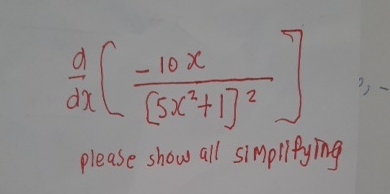 d/dx ( -10x / [5x²+1]² ]
please show all simplifying